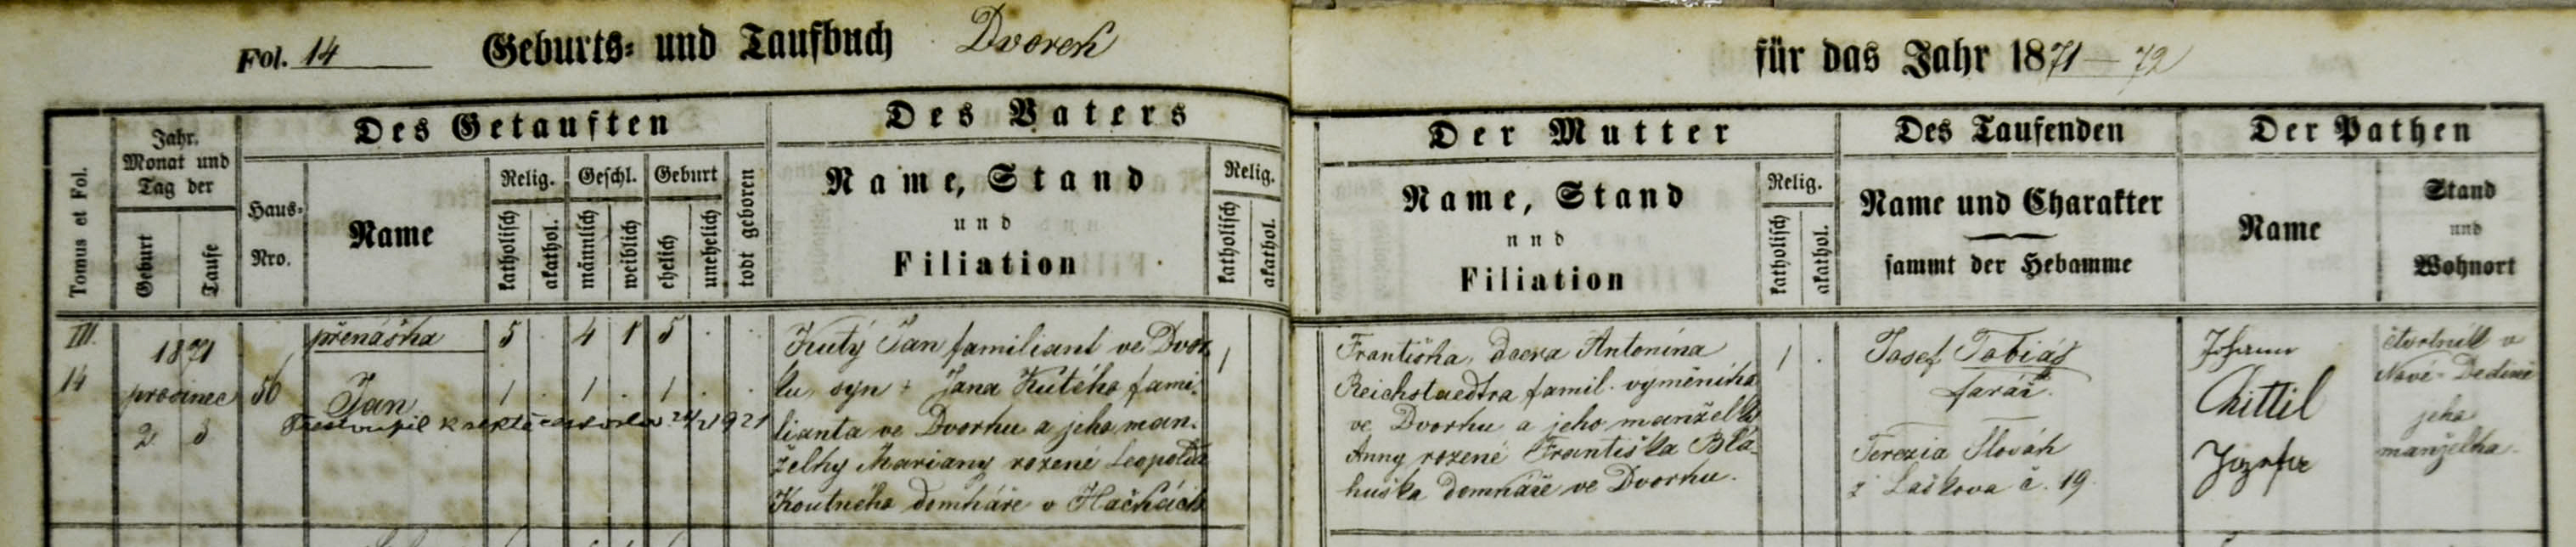 Fol. 14 Geburts- und Taufbuch Dvorek für das Jahr 1871-72
Des Getauften
Des Vaters
Der Mutter
Des Taufenden
Der Pathen
Tomus et Fol.
Jahr.
Monat und
Tag der
Geburt
Taufe
Haus-
Nro.
Name
Relig.
katholisch
akathol.
Geschl.
männlich
weiblich
Geburt
ehelich
unehelich
todt geboren
Name, Stand
und
Filiation
Relig.
katholisch
akathol.
Name, Stand
und
Filiation
Relig.
katholisch
akathol.
Name und Charakter
sammt der Hebamme
Name
Stand
und
Wohnort
III.
14
1871
prosinec
2 3
56
přenáška 5 . 4 1 5 . .
Jan 1 . 1 . 1 . .
1921
Kutý Jan familiant ve Dvor
ku, syn + Jana Kutého fami-
lianta ve Dvorku a jeho man-
želky Mariany rozené Leopolda
Koutného domkáře v Hačkách
1
Františka, dcera Antonína
Reichstaedtra famil. výměníka
ve Dvorku a jeho manželky
Anny rozené Františka Bla-
huška domkáře ve Dvorku.
1 .
Josef Tobiáš
farář.
Terezia Slovák
z Laškova č. 19
Johann
Chittil
Jozefa
čtvrtník v
Nové-Dědině
jeho
manželka.